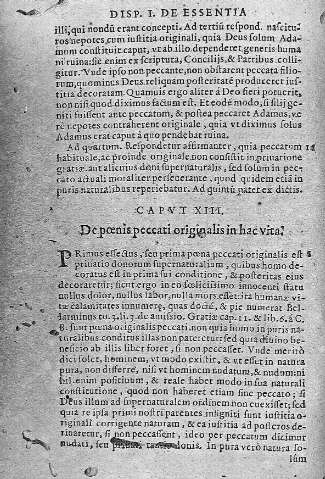 DISP. I. DE ESSENTIA
illi, qui nondū erant concepti. Ad tertiū respond. nascitu-
ros nepotes, cum iustitia originali, quia Deus solum Ada-
mom constituit caput, vt ab illo dependeret generis huma
ni ruina: sic enim ex scriptura, Concilijs, & Patribus colli-
gitur. Vnde ipso non peccante, non obstarent peccata filio-
rum, quominus Deus reliquam posteritatē produceret iu-
stitia decoratam. Quamuis ergo aliter à Deo fieri potuerit,
non nisi quod diximus factum est. Et eodē modo, si filij ge-
niti fuissent ante peccatum, & postea peccaret Adamus, ve
rè nepotes contraherent originale, quia vt diximus solus
Adamus erat caput à quo pendebat ruina.
Ad quartum. Respondetur affirmanter, quia peccatum
habituale, ac proinde originale non consistit in priuatione
gratiæ aut alicuius doni supernaturalis, sed solum in pec-
cato actuali moraliter perseuerante, quod quidem etiā in
puris naturalibus reperiebatur. Ad quintū patet ex dictis.
CAPVT XIII.
De pœnis peccati originalis in hac vita?
PRimus effectus, seu prima pœna peccati originalis est
priuatio donorum supernaturalium, quibus homo de-
coratus est in prima sui conditione, & posteritas eius
decoraretur; sicut ergo in eo fœlicissimo innocenti statu
nullus dolor, nullus labor, nulla mors esset ita humanæ vi-
tæ calamitates innumeræ, quas doctè, & piè numerat Bel-
larminus to. 4. li. 3. de amissio. Gratiæ cap. 11. & lib. 6. à C.
sunt pœnæ originalis peccati. non quia homo in puris na-
turalibus conditus illas non pateretur sed quia diuino be-
neficio ab illis liber foret, si non peccasset. Vnde meritò
dici solet, hominem, vt modo existit, & vt esset in natura
pura, non differre, nisi vt hominem nudatum, & nudum
nihil enim positiuum, & reale habet modo in sua naturali
constitutione, quod non haberet etiam sine peccato; si
Deus illum ad supernaturalem ordinem non euexisset; sed
quia re ipsa primi nostri parentes insigniti sunt iustitia o-
riginali corrigente naturam, & ea iustitia ad posteros de-
riuaretur, si non peccassent, ideo per peccatum dicimur
nudati, seu donis. In pura verò natura so-
lùm